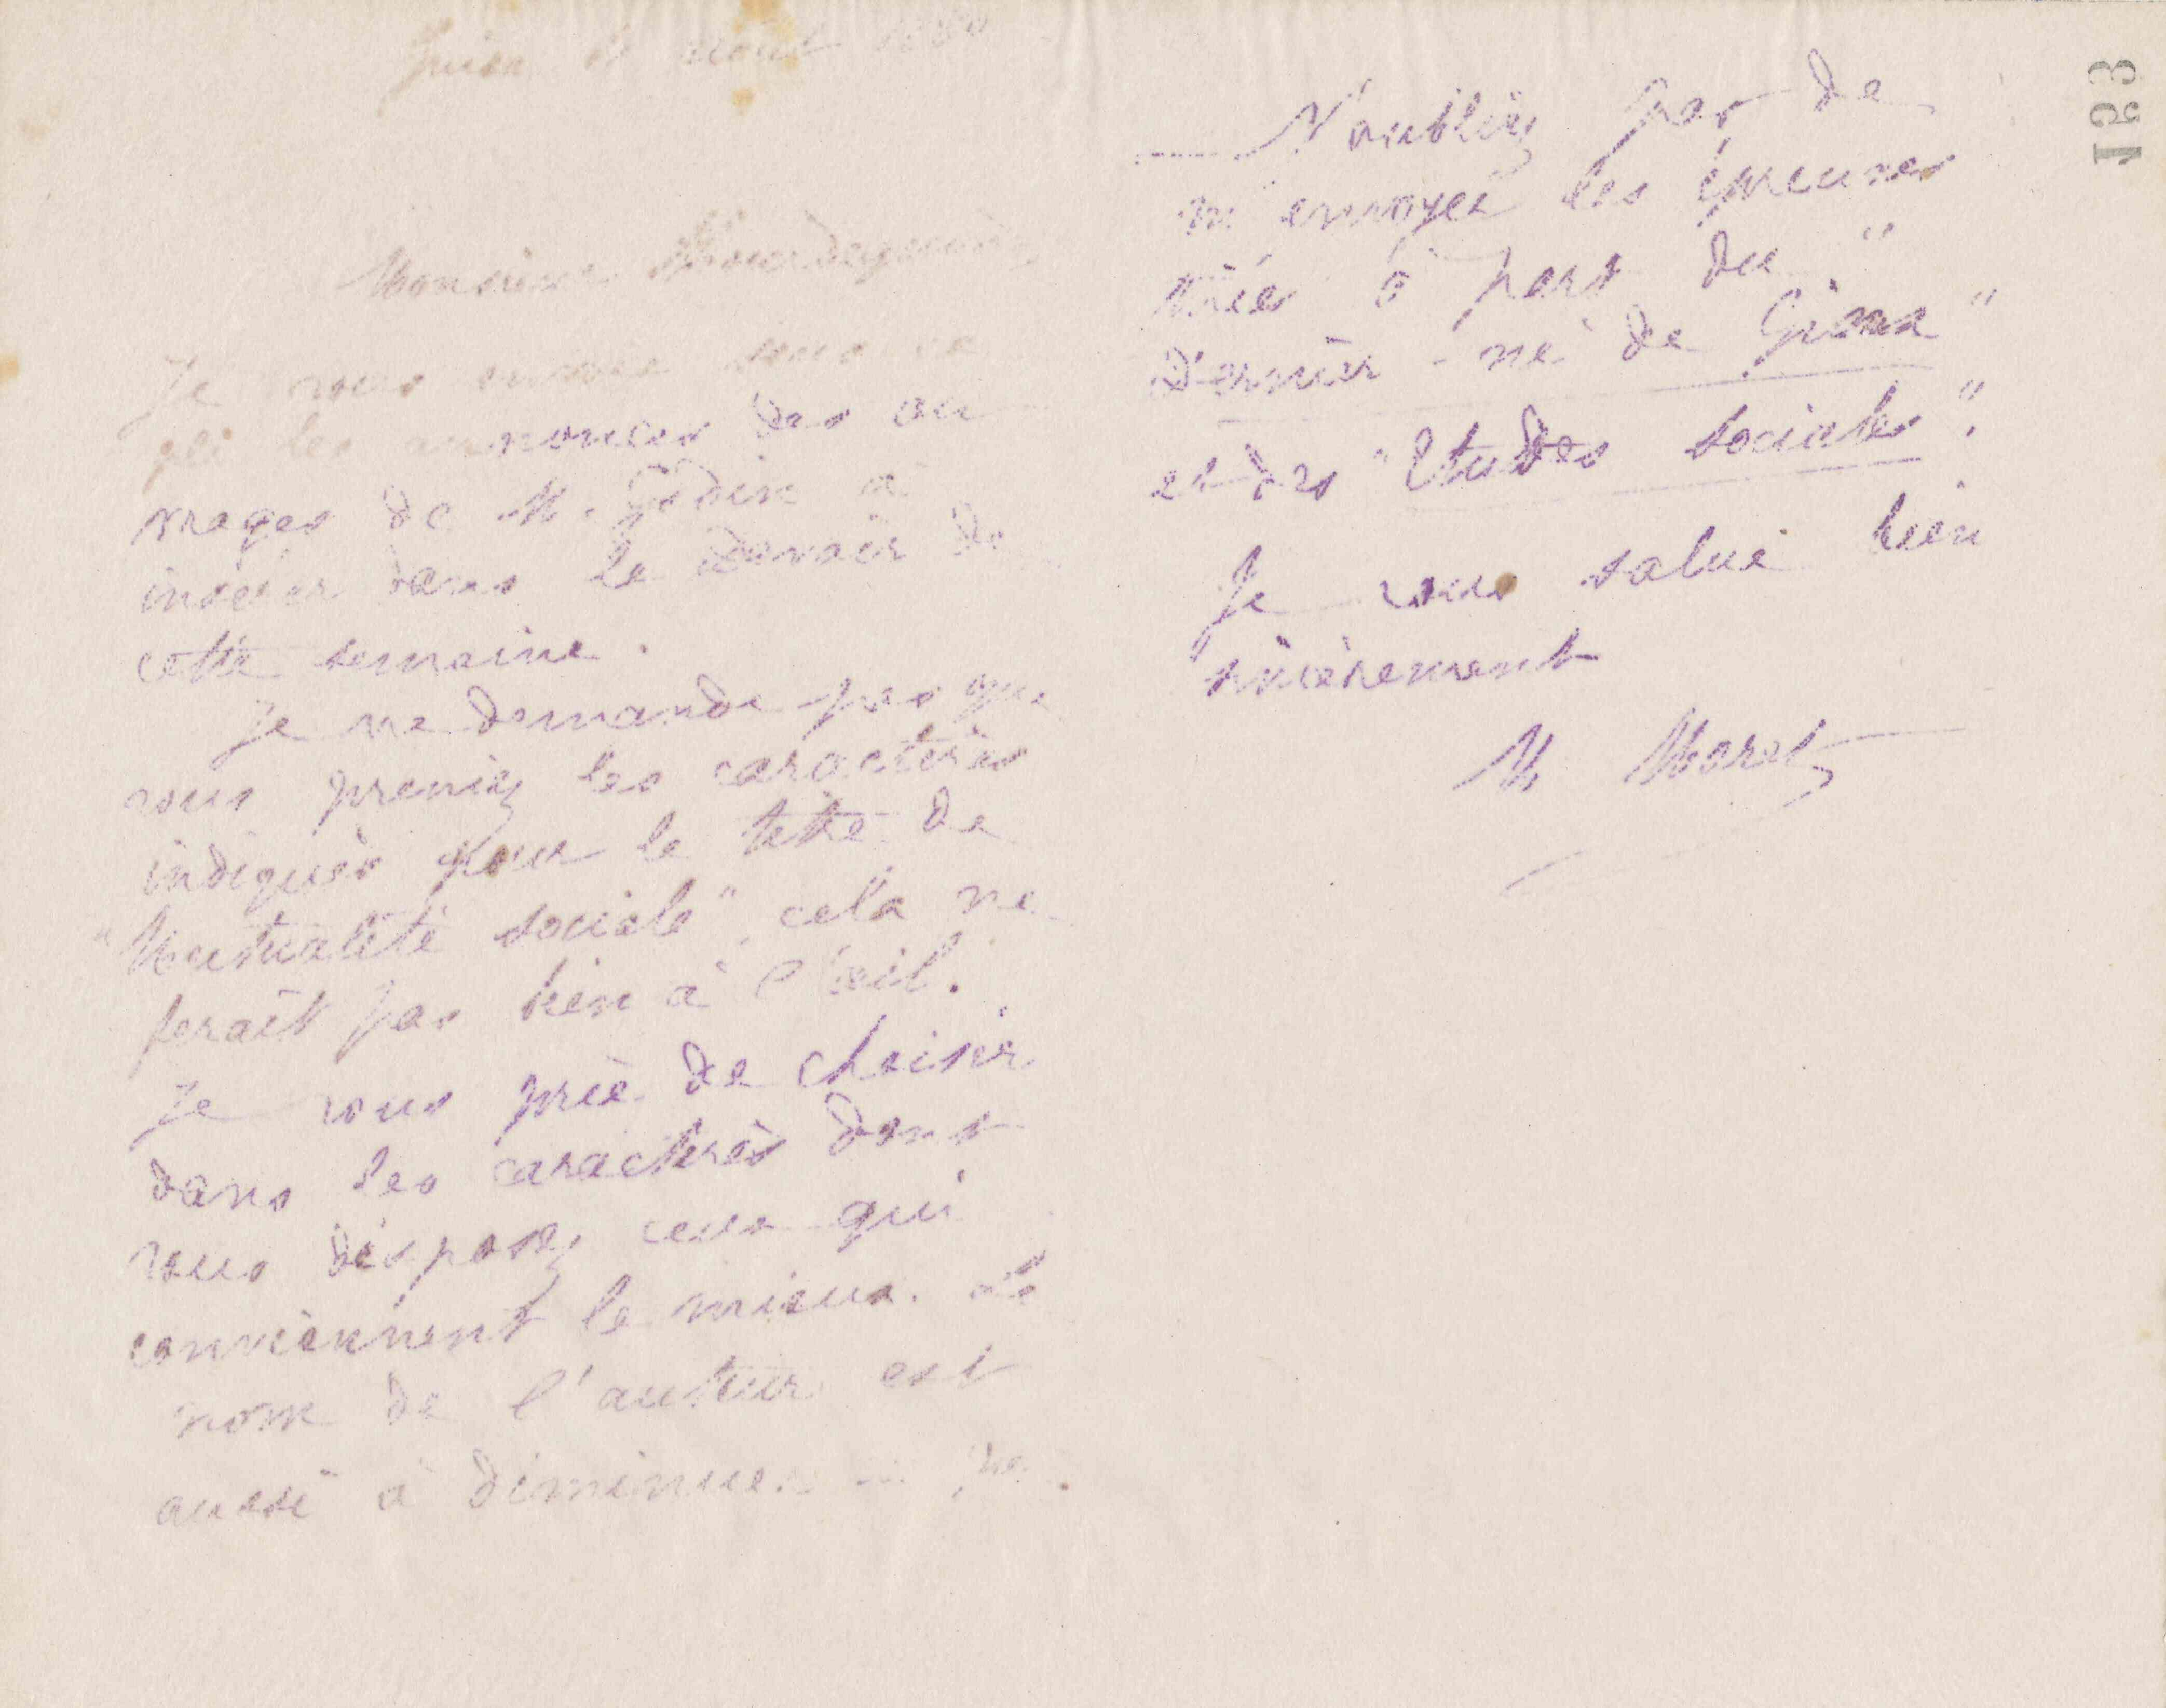 Guise
Monsieur
Je vous envoie sous ce
pli les annonces des ou
vrages de M. Godin à
insérer dans le Devoir de
cette semaine.
Je ne demande pas que
vous preniez les caractères
indiqués pour le titre de
"Mutualité sociale" cela ne
ferait pas bien à l'œil.
Je vous prie de choisir
dans les caractères dont
vous disposez ceux qui
conviennent le mieux. Le
nom de l'auteur est
aussi à diminuer
N'oubliez pas de
m'envoyer les épreuves
tirées à part du "
Dernier-né de
et des "Etudes sociales".
Je vous salue bien
sincèrement
M Moret
123